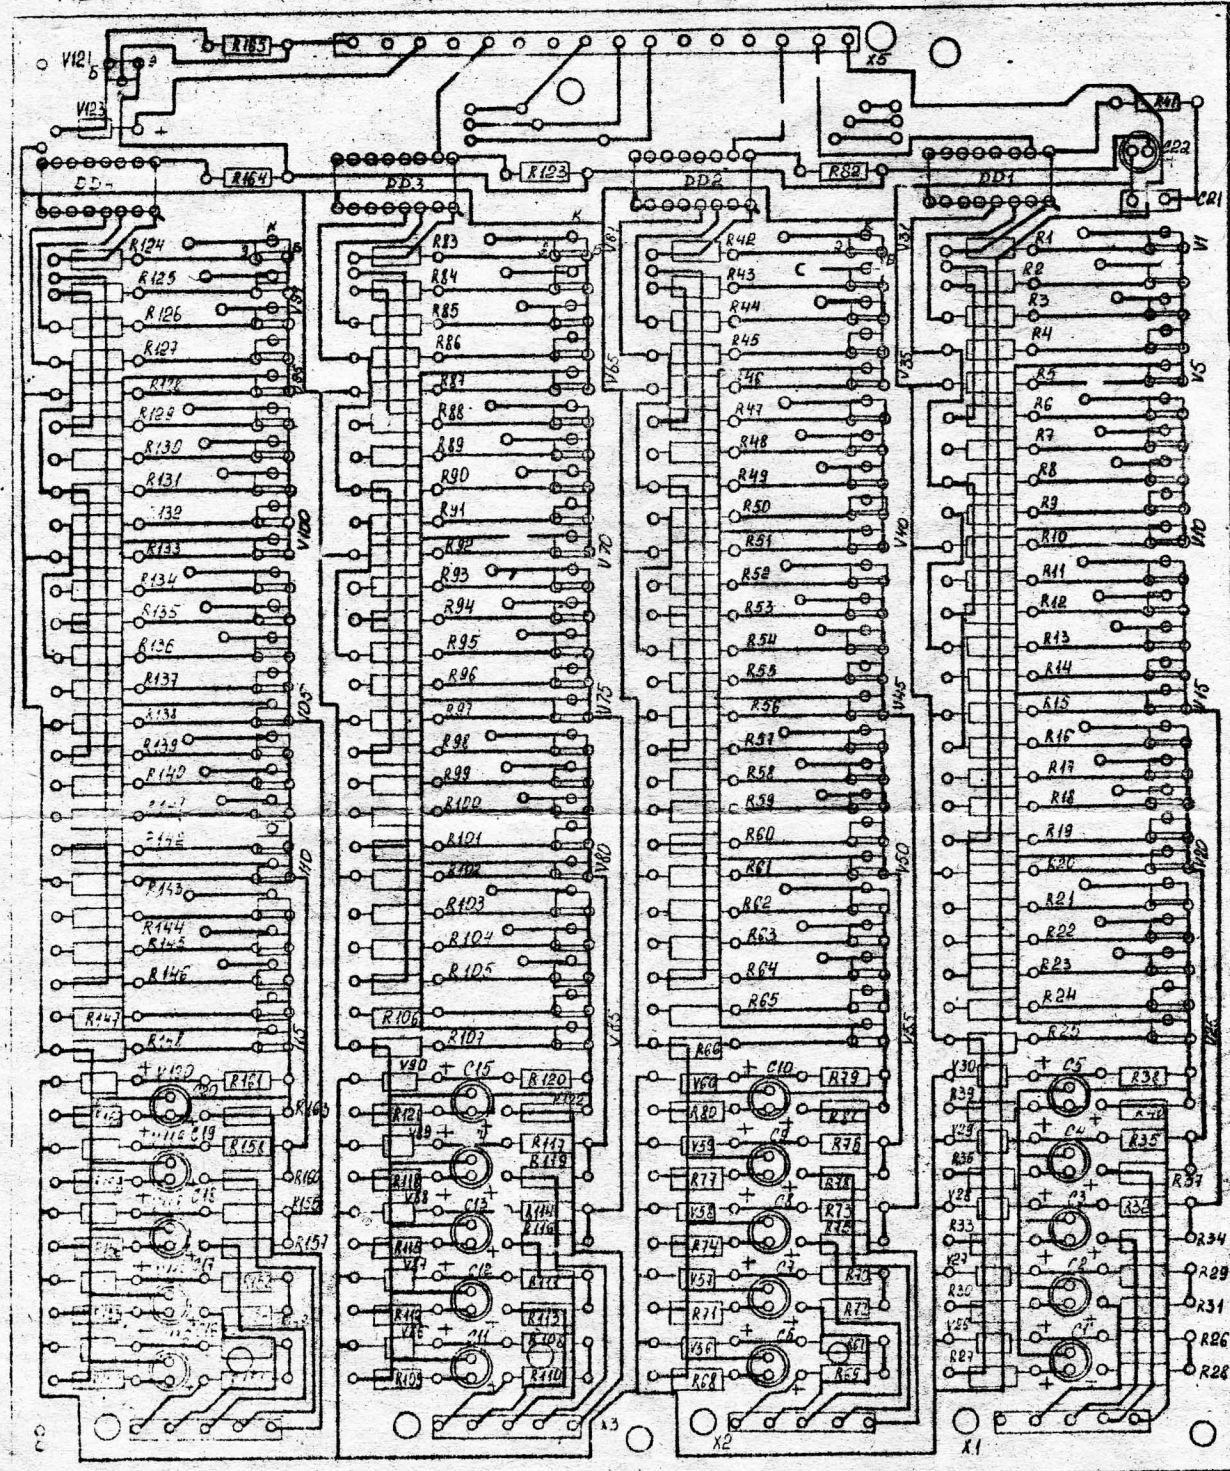 V121
Б
Э
R165
X5
V123
+
R41
C22
+
R164
R123
R82
DD3
DD2
DD1
C21
R124
R125
R126
R127
R128
R129
R130
R131
R133
V100
R134
R135
R136
R137
R138
R139
R140
R142
R143
R144
R145
R146
R147
К
R83
R84
R85
R86
R87
R88
R89
R90
R91
R92
R93
R94
R95
R96
R97
R98
R99
R100
R101
R102
R103
R104
R105
R106
R107
V61
V65
V70
V75
V80
V85
R42
R43
R44
R45
R47
R48
R49
R50
R51
R52
R53
R54
R55
R56
R57
R58
R59
R60
R61
R62
R63
R64
R65
R66
V35
V40
V45
V50
V55
R1
R2
R3
R4
R5
R6
R7
R8
R9
R10
R11
R12
R13
R14
R15
R16
R17
R18
R19
R20
R21
R22
R23
R24
R25
V1
V5
V10
V15
V20
V25
V120
C20
R161
R163
C19
R158
R160
C18
R155
R157
C17
V90
C15
R120
R121
V89
R117
R119
R118
V88
C13
R114
R116
R115
V87
C12
R111
R112
R113
V86
C11
R108
R109
R110
X3
V60
C10
R79
R80
R81
V59
C9
R76
R77
R78
V58
C8
R73
R74
R75
V57
C7
R70
R71
R72
V56
C6
R67
R68
R69
X2
V30
C5
R38
R39
R40
V29
C4
R35
R36
R37
V28
C3
R32
R33
R34
V27
C2
R29
R30
R31
V26
C1
R26
R27
R28
X1